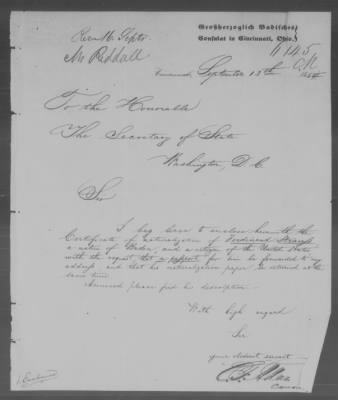 Recd 16 Septr
Mr Riddall
Großherzoglich Badisches
Consulat in Cincinnati, Ohio.
Cincinnati, September 13th
To the Honorable
The Secretary of State
Washington, D. C.
Sir
I beg leave to enclose herewith the
Certificate of naturalization of Ferdinand Strauss
a native of Baden, and a citizen of the United States
with the request that a passport for him be forwarded to my
address, and that his naturalization paper be returned at the
same time.
Annexed please find his description.
With high regard
Sir
your obedient servant
C. F. Adae
Consul
1 Enclosure